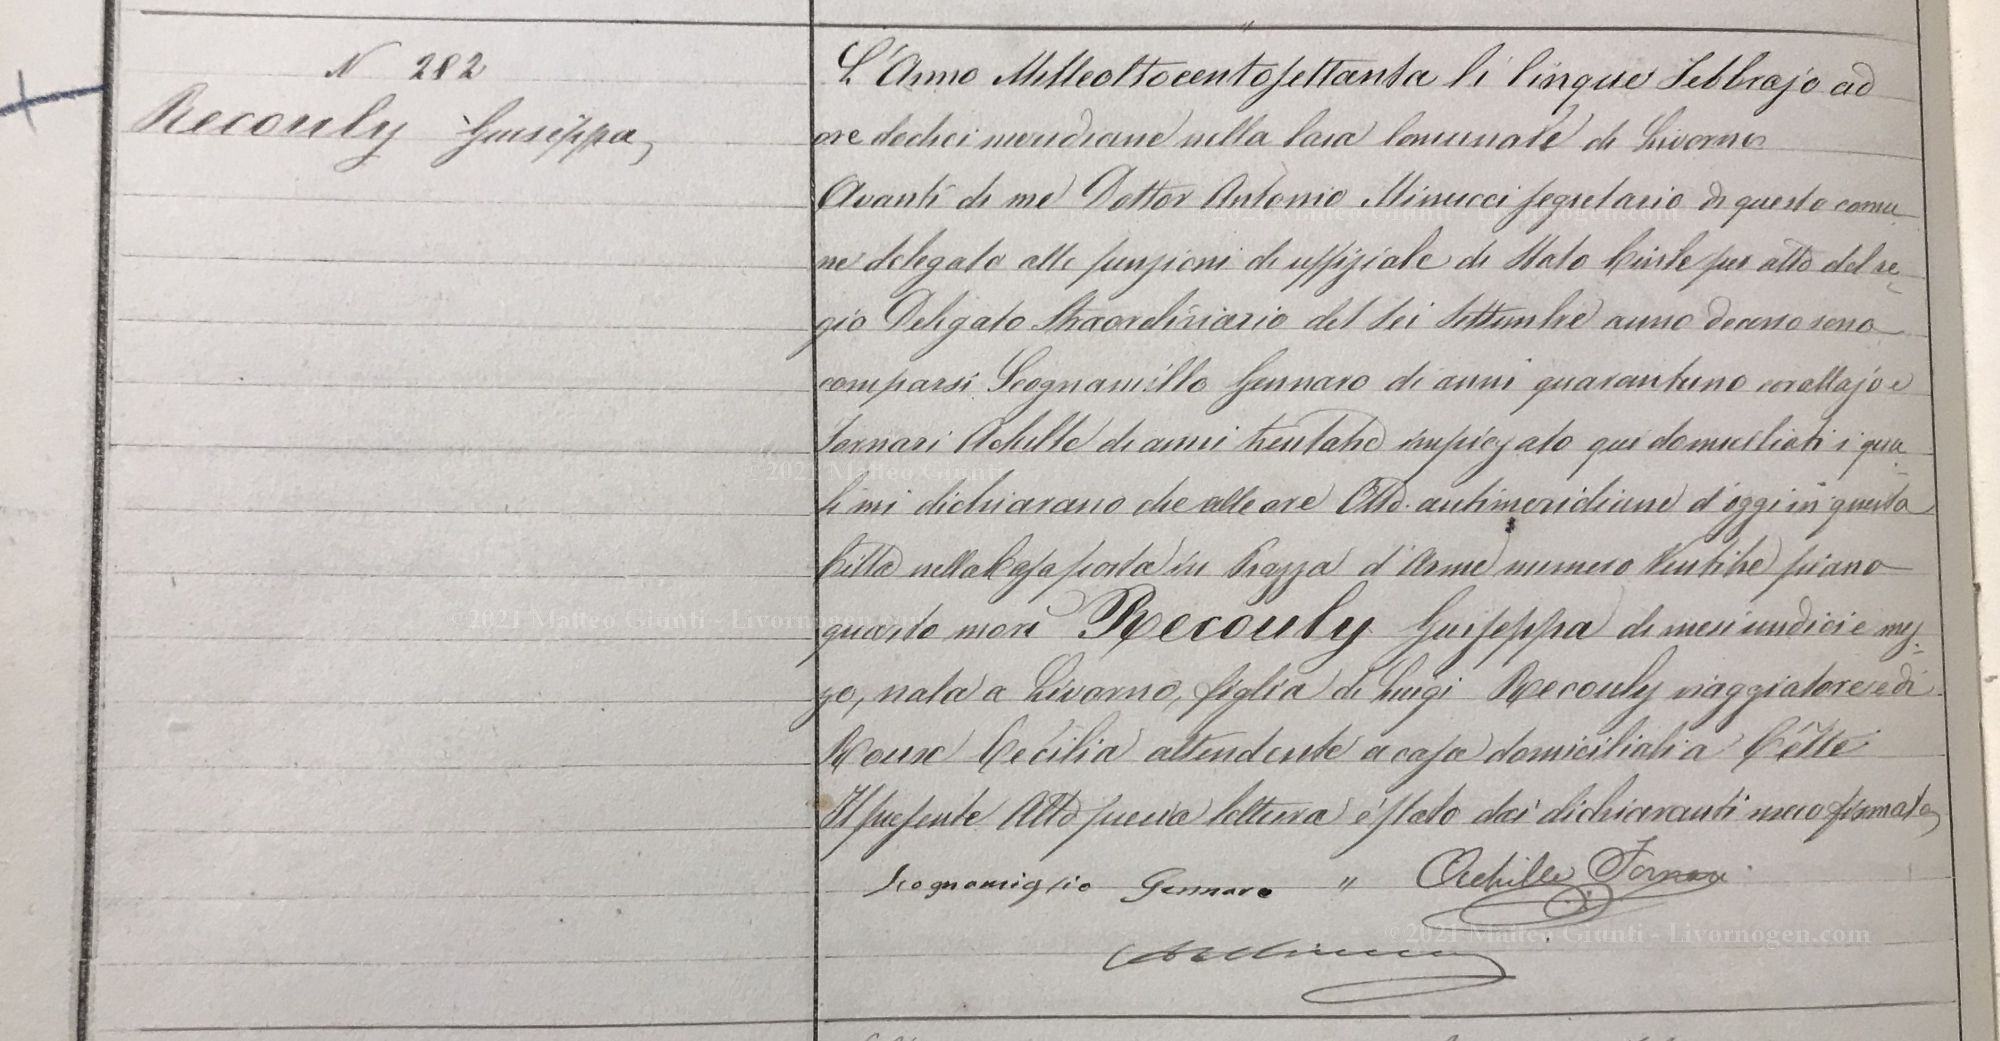 N 282
Recouly Giuseppa
L'Anno Milleottocentosettanta li Cinque Febbrajo ad
ore dodici meridiane nella Casa Comunale di Livorno
Avanti di me Dottor Antonio Minucci segretario di questo comu
ne delegato alle funzioni di uffiziale di Stato Civile per atto del re
gio Delegato Straordinario del sei Settembre anno decorso sono
comparsi Scognamillo Gennaro di anni quarantuno corallajo e
Fornari Achille di anni trentatre impiegato qui domiciliati i qua
li mi dichiarano che alle ore Otto antimeridiane d'oggi in questa
Città nella Casa posta in Piazza d'Arme numero Ventitre piano
quarto morì Recouly Giuseppa di mesi undici e mez
zo, nata a Livorno, figlia di Luigi Recouly viaggiatore e di
Roux Cecilia attendente a casa domiciliati a Cette
Il presente Atto previa lettura è stato dai dichiaranti meco firmato
Scognamiglio Gennaro " Achille Fornari
©2021 Matteo Giunti - Livornogen.com
©2021 Matteo Giunti
©2021 Matteo Giunti - Livornogen.com
©2021 Matteo Giunti - Livornogen.com